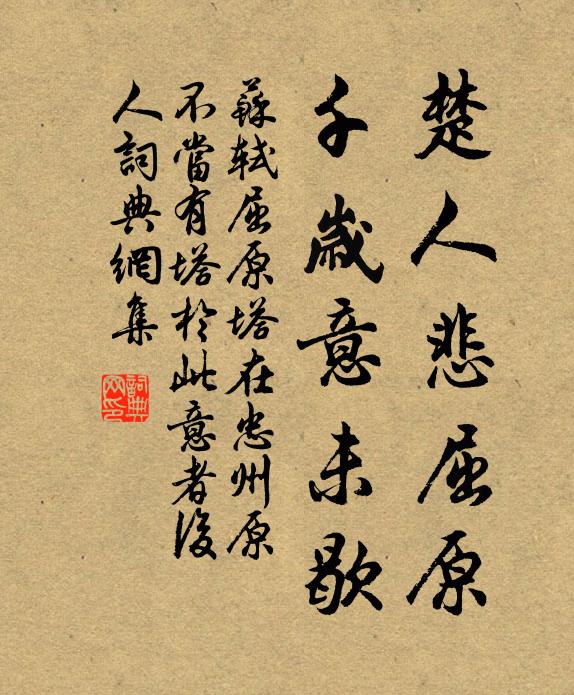 楚人悲屈原
千歲意未歇
蘇軾屈原塔在忠州原
不當有塔於此意者後
人詞典網集
詞典網印